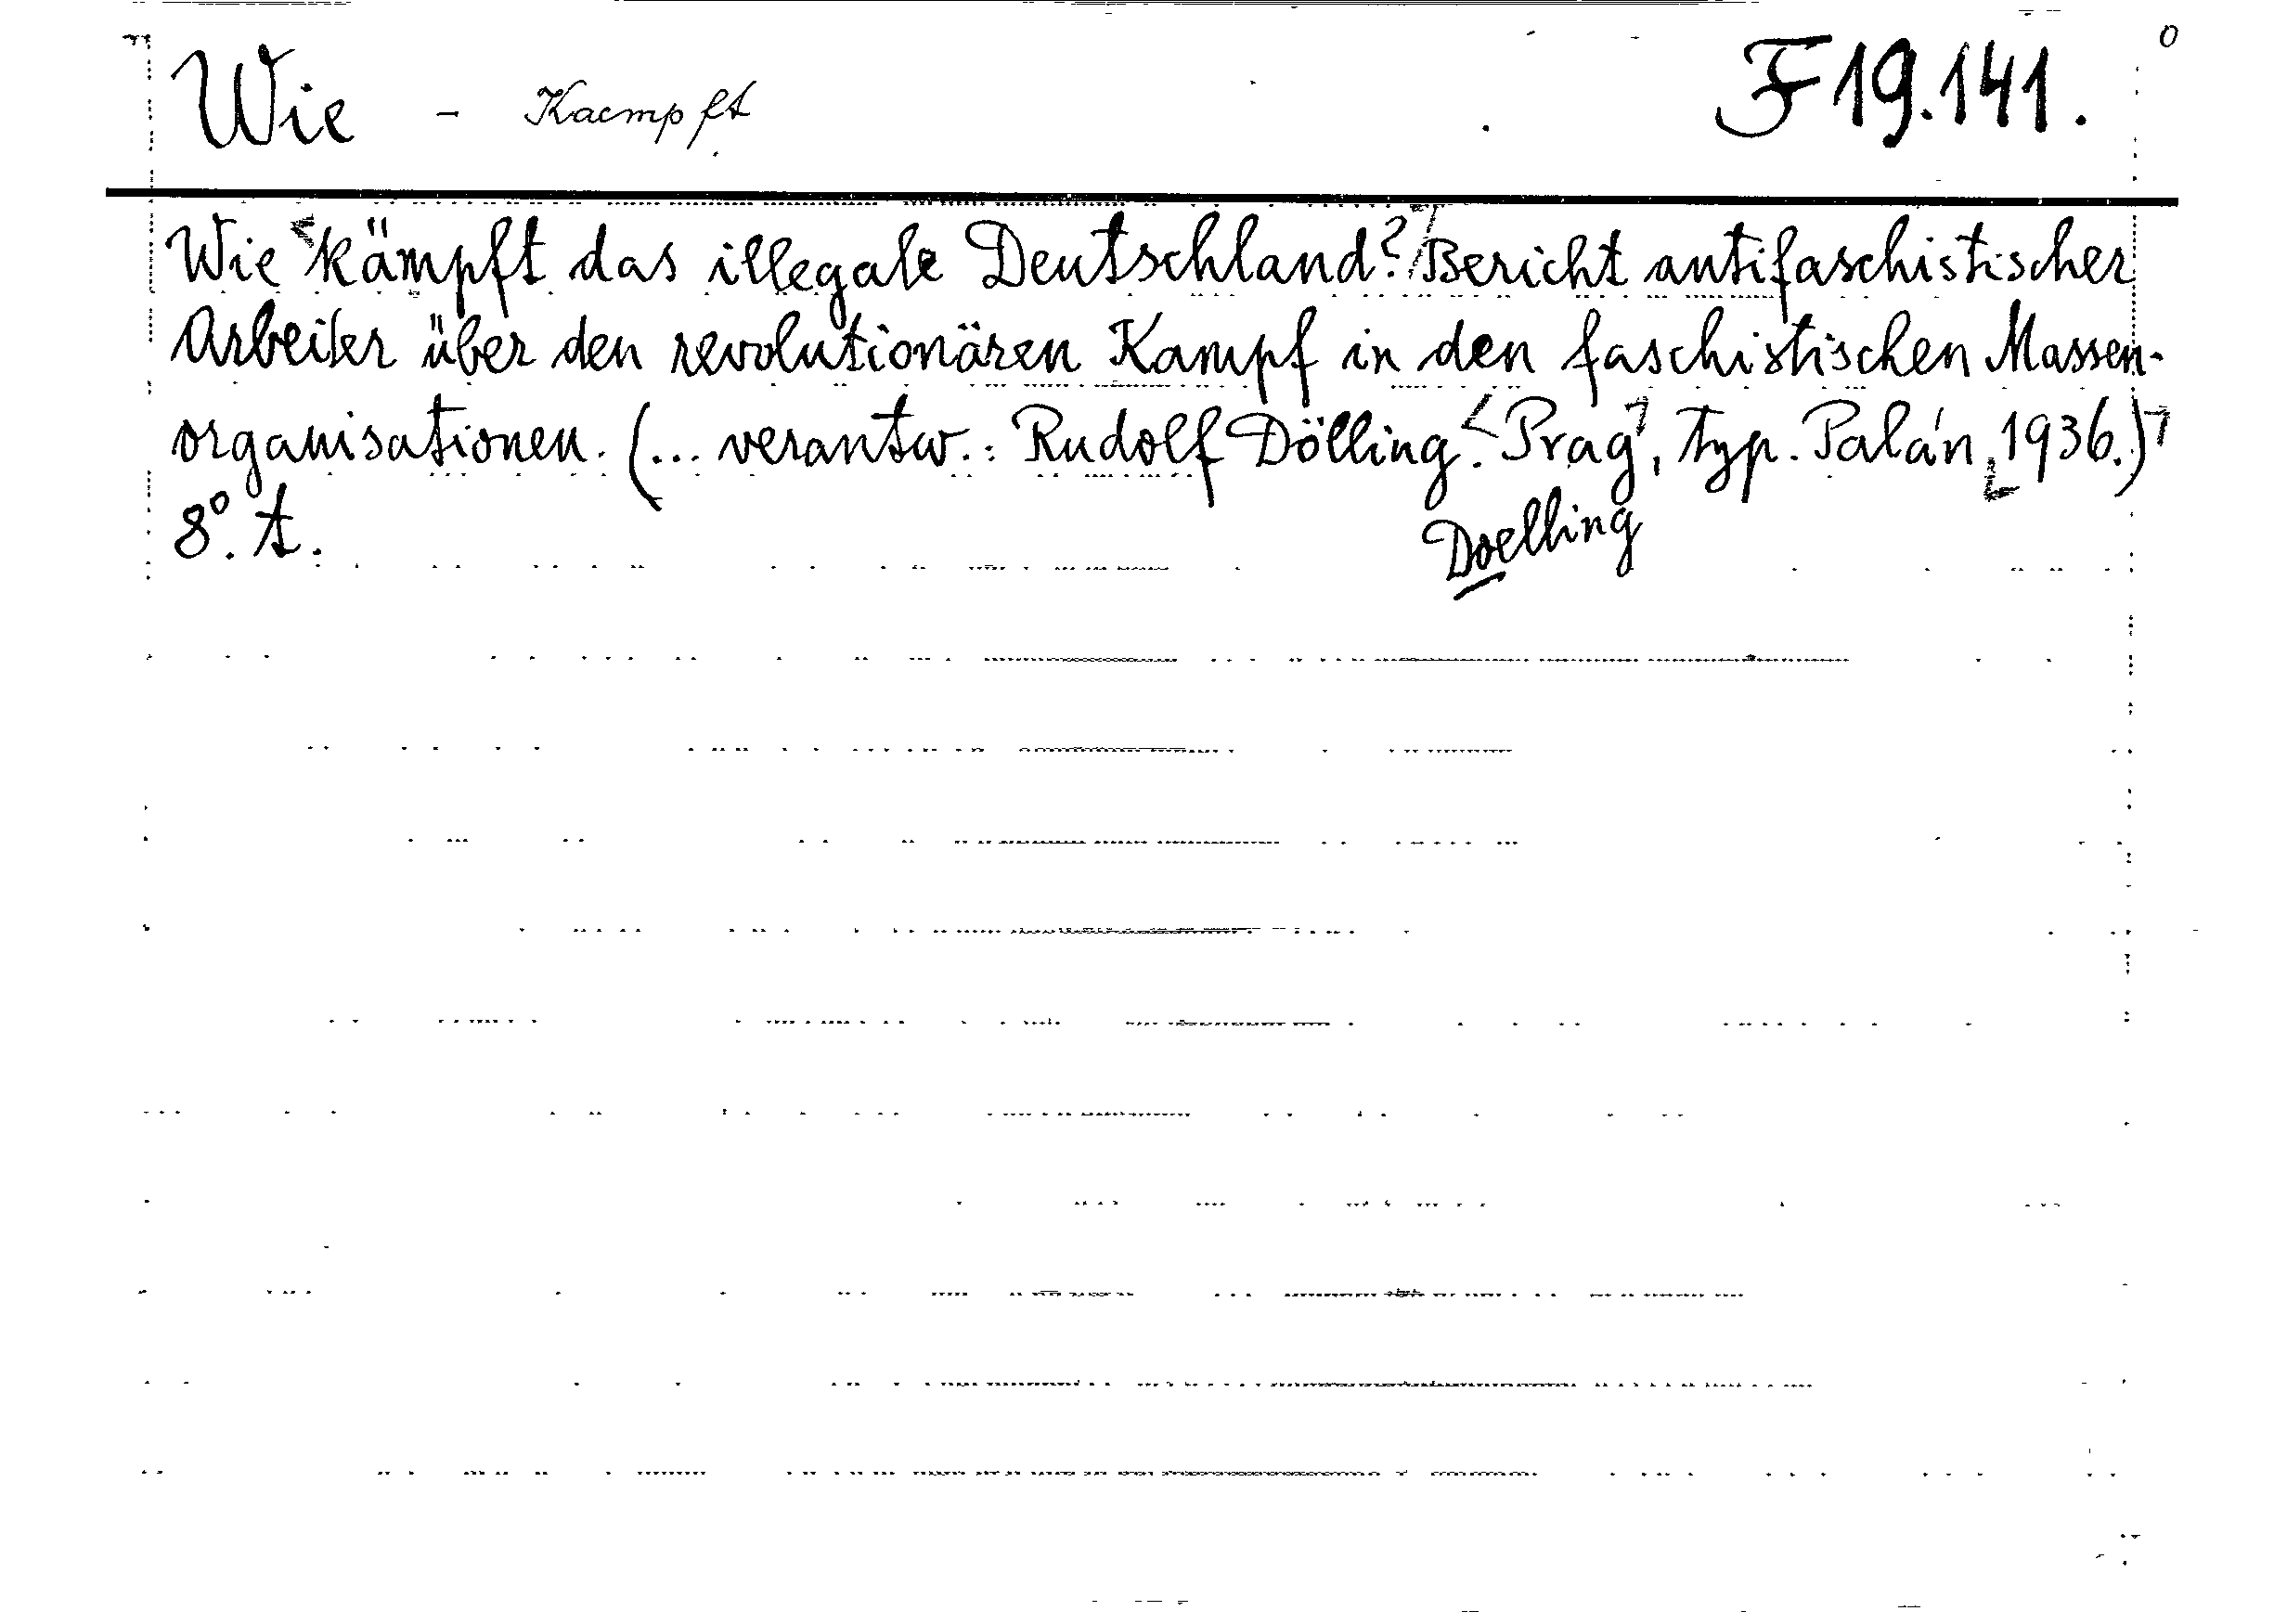 Wie - Kaempft F 19.141.
Wie kämpft das illegale Deutschland? Bericht antifaschistischer
Arbeiter über den revolutionären Kampf in den faschistischen Massen-
organisationen. (... verantw.: Rudolf Dölling. Prag, typ. Palán, 1936.)
8°. t.
Doelling